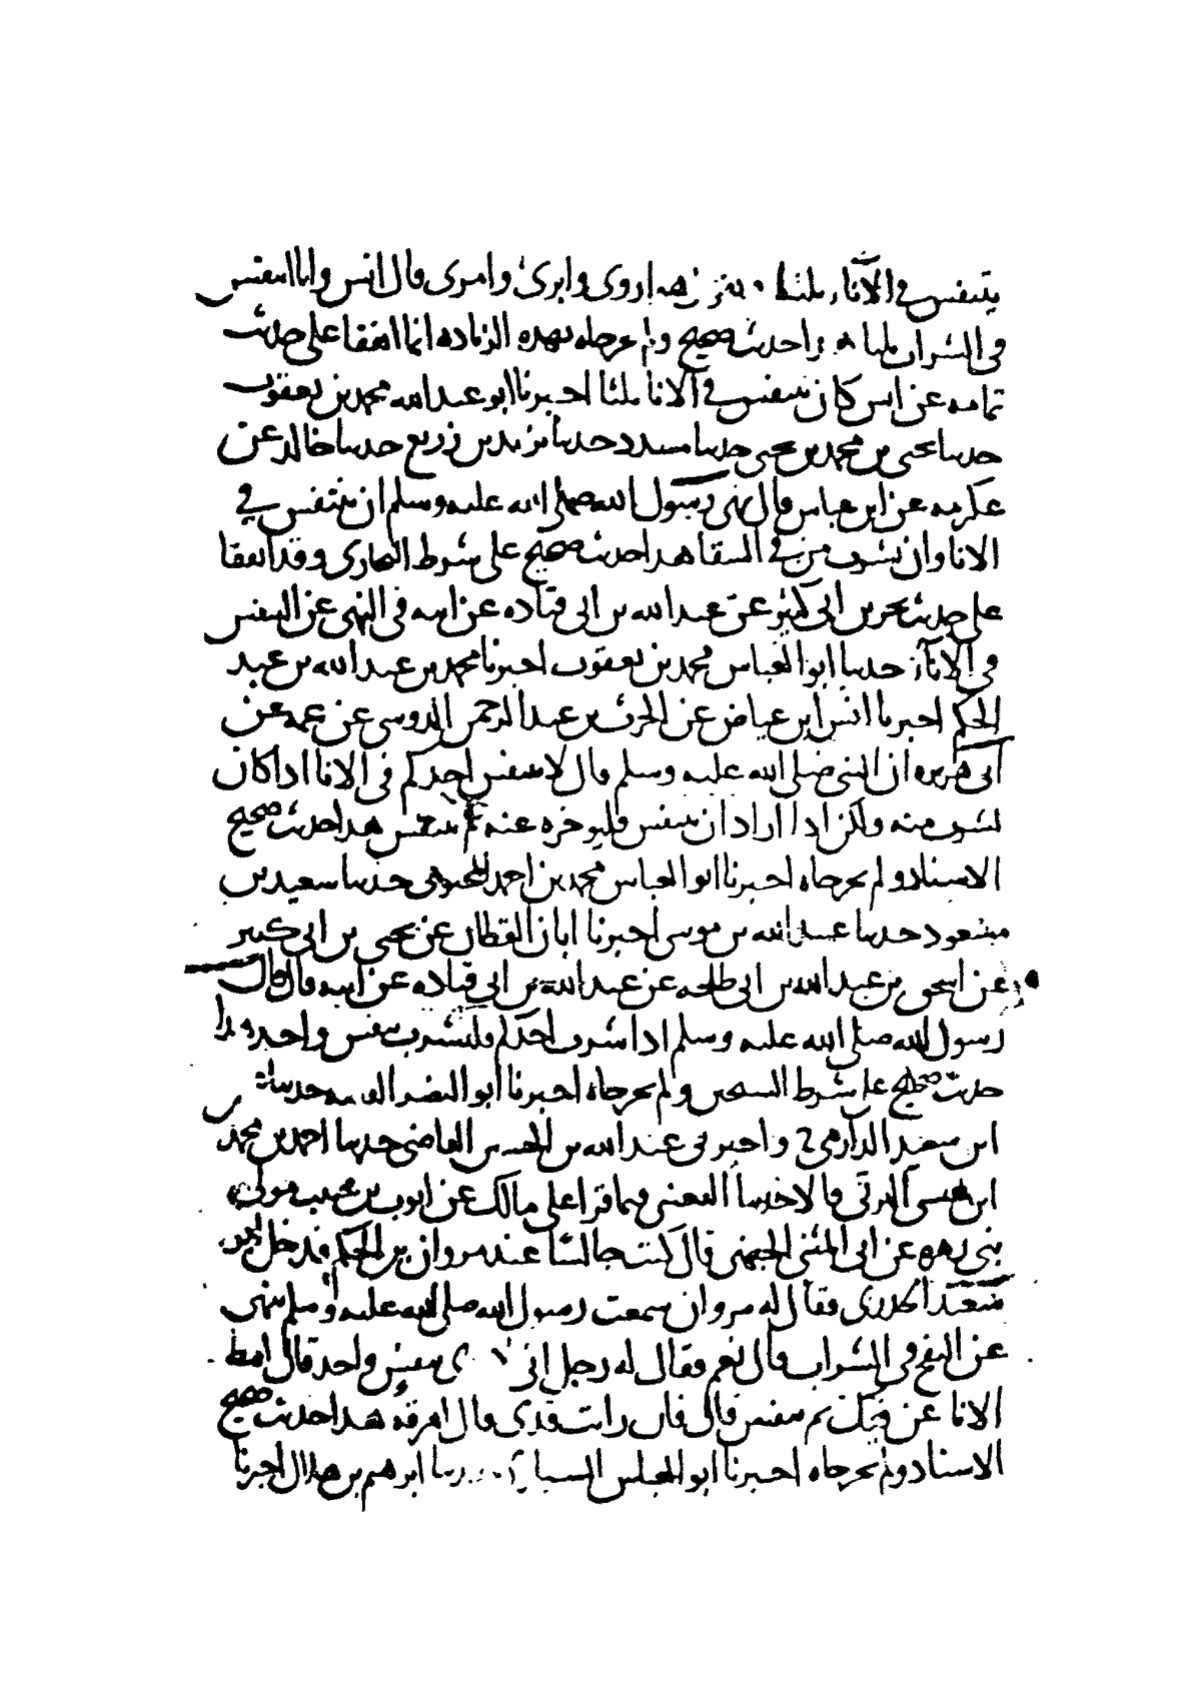 يتنفس في الاناء ثلثا هو اروى وابرى وامرى قال انس وانا اتنفس
في الشراب ثلثا هذا حديث صحيح ولم يخرجاه بهذه الزياده انما اتفقا على حديث
ثمامه عن انس كان يتنفس في الانا ثلثا اخبرنا ابو عبد الله محمد بن يعقوب
حدثنا يحيى بن محمد بن يحيى حدثنا مسدد حدثنا يزيد بن زريع حدثنا خالد عن
عكرمه عن ابن عباس قال نهى رسول الله صلى الله عليه وسلم ان يتنفس في
الانا وان يشرب من في السقا هذا حديث صحيح على شرط البخاري وقد اتفقا
على حديث يحيى بن ابي كثير عن عبد الله بن ابي قتاده عن ابيه في النهي عن التنفس
في الانا حدثنا ابو العباس محمد بن يعقوب اخبرنا محمد بن عبد الله بن عبد
الحكم اخبرنا انس ابن عياض عن الحرث بن عبد الرحمن الدوسي عن عمه عن
ابي هريره ان النبي صلى الله عليه وسلم قال لا يتنفس احدكم في الانا اذا كان
يشرب منه ولكن اذا اراد ان يتنفس فليوخره عنه ثم يتنفس هذا حديث صحيح
الاسناد ولم يخرجاه اخبرنا ابو العباس محمد بن احمد المحبوبي حدثنا سعيد بن
مسعود حدثنا عبيد الله بن موسى اخبرنا ابان القطان عن يحيى بن ابي كثير
عن اسحق بن عبد الله بن ابي طلحه عن عبد الله بن ابي قتاده عن ابيه قال قال
رسول الله صلى الله عليه وسلم اذا شرب احدكم فليشرب بنفس واحد هذا
حديث صحيح على شرط الشيخين ولم يخرجاه اخبرنا ابو النضر الفقيه حدثنا
ابن سعيد الدارمي ح واخبرني عبد الله بن الحسين القاضي حدثنا احمد بن محمد
ابن عيسى البرتي قالا حدثنا القعنبي فيما قرا على مالك عن ايوب بن حبيب مولى
بني زهره عن ابي المثنى الجهني قال كنت جالسا عند مروان بن الحكم فدخل ابو
سعيد الخدري فقال له مروان سمعت رسول الله صلى الله عليه وسلم ينهى
عن النفخ في الشراب قال نعم فقال له رجل اني لا اروى بنفس واحد قال امط
الانا عن فيك ثم تنفس قال فان رايت قذى قال اهرقه هذا حديث صحيح
الاسناد ولم يخرجاه اخبرنا ابو العباس السياري حدثنا ابرهيم بن هلال اخبرنا